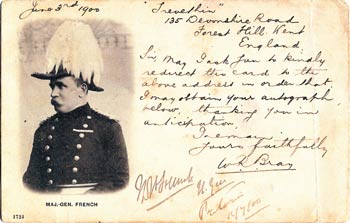 June 3rd 1900
"Trevethin"
135 Devonshire Road
Forest Hill. Kent
England.
Sir May I ask you to kindly
redirect this card to the
above address in order that
I may obtain your autograph
below, thanking you in
anticipation
I remain
Yours faithfully
W. R. Bray
MAJ.-GEN. FRENCH
1724